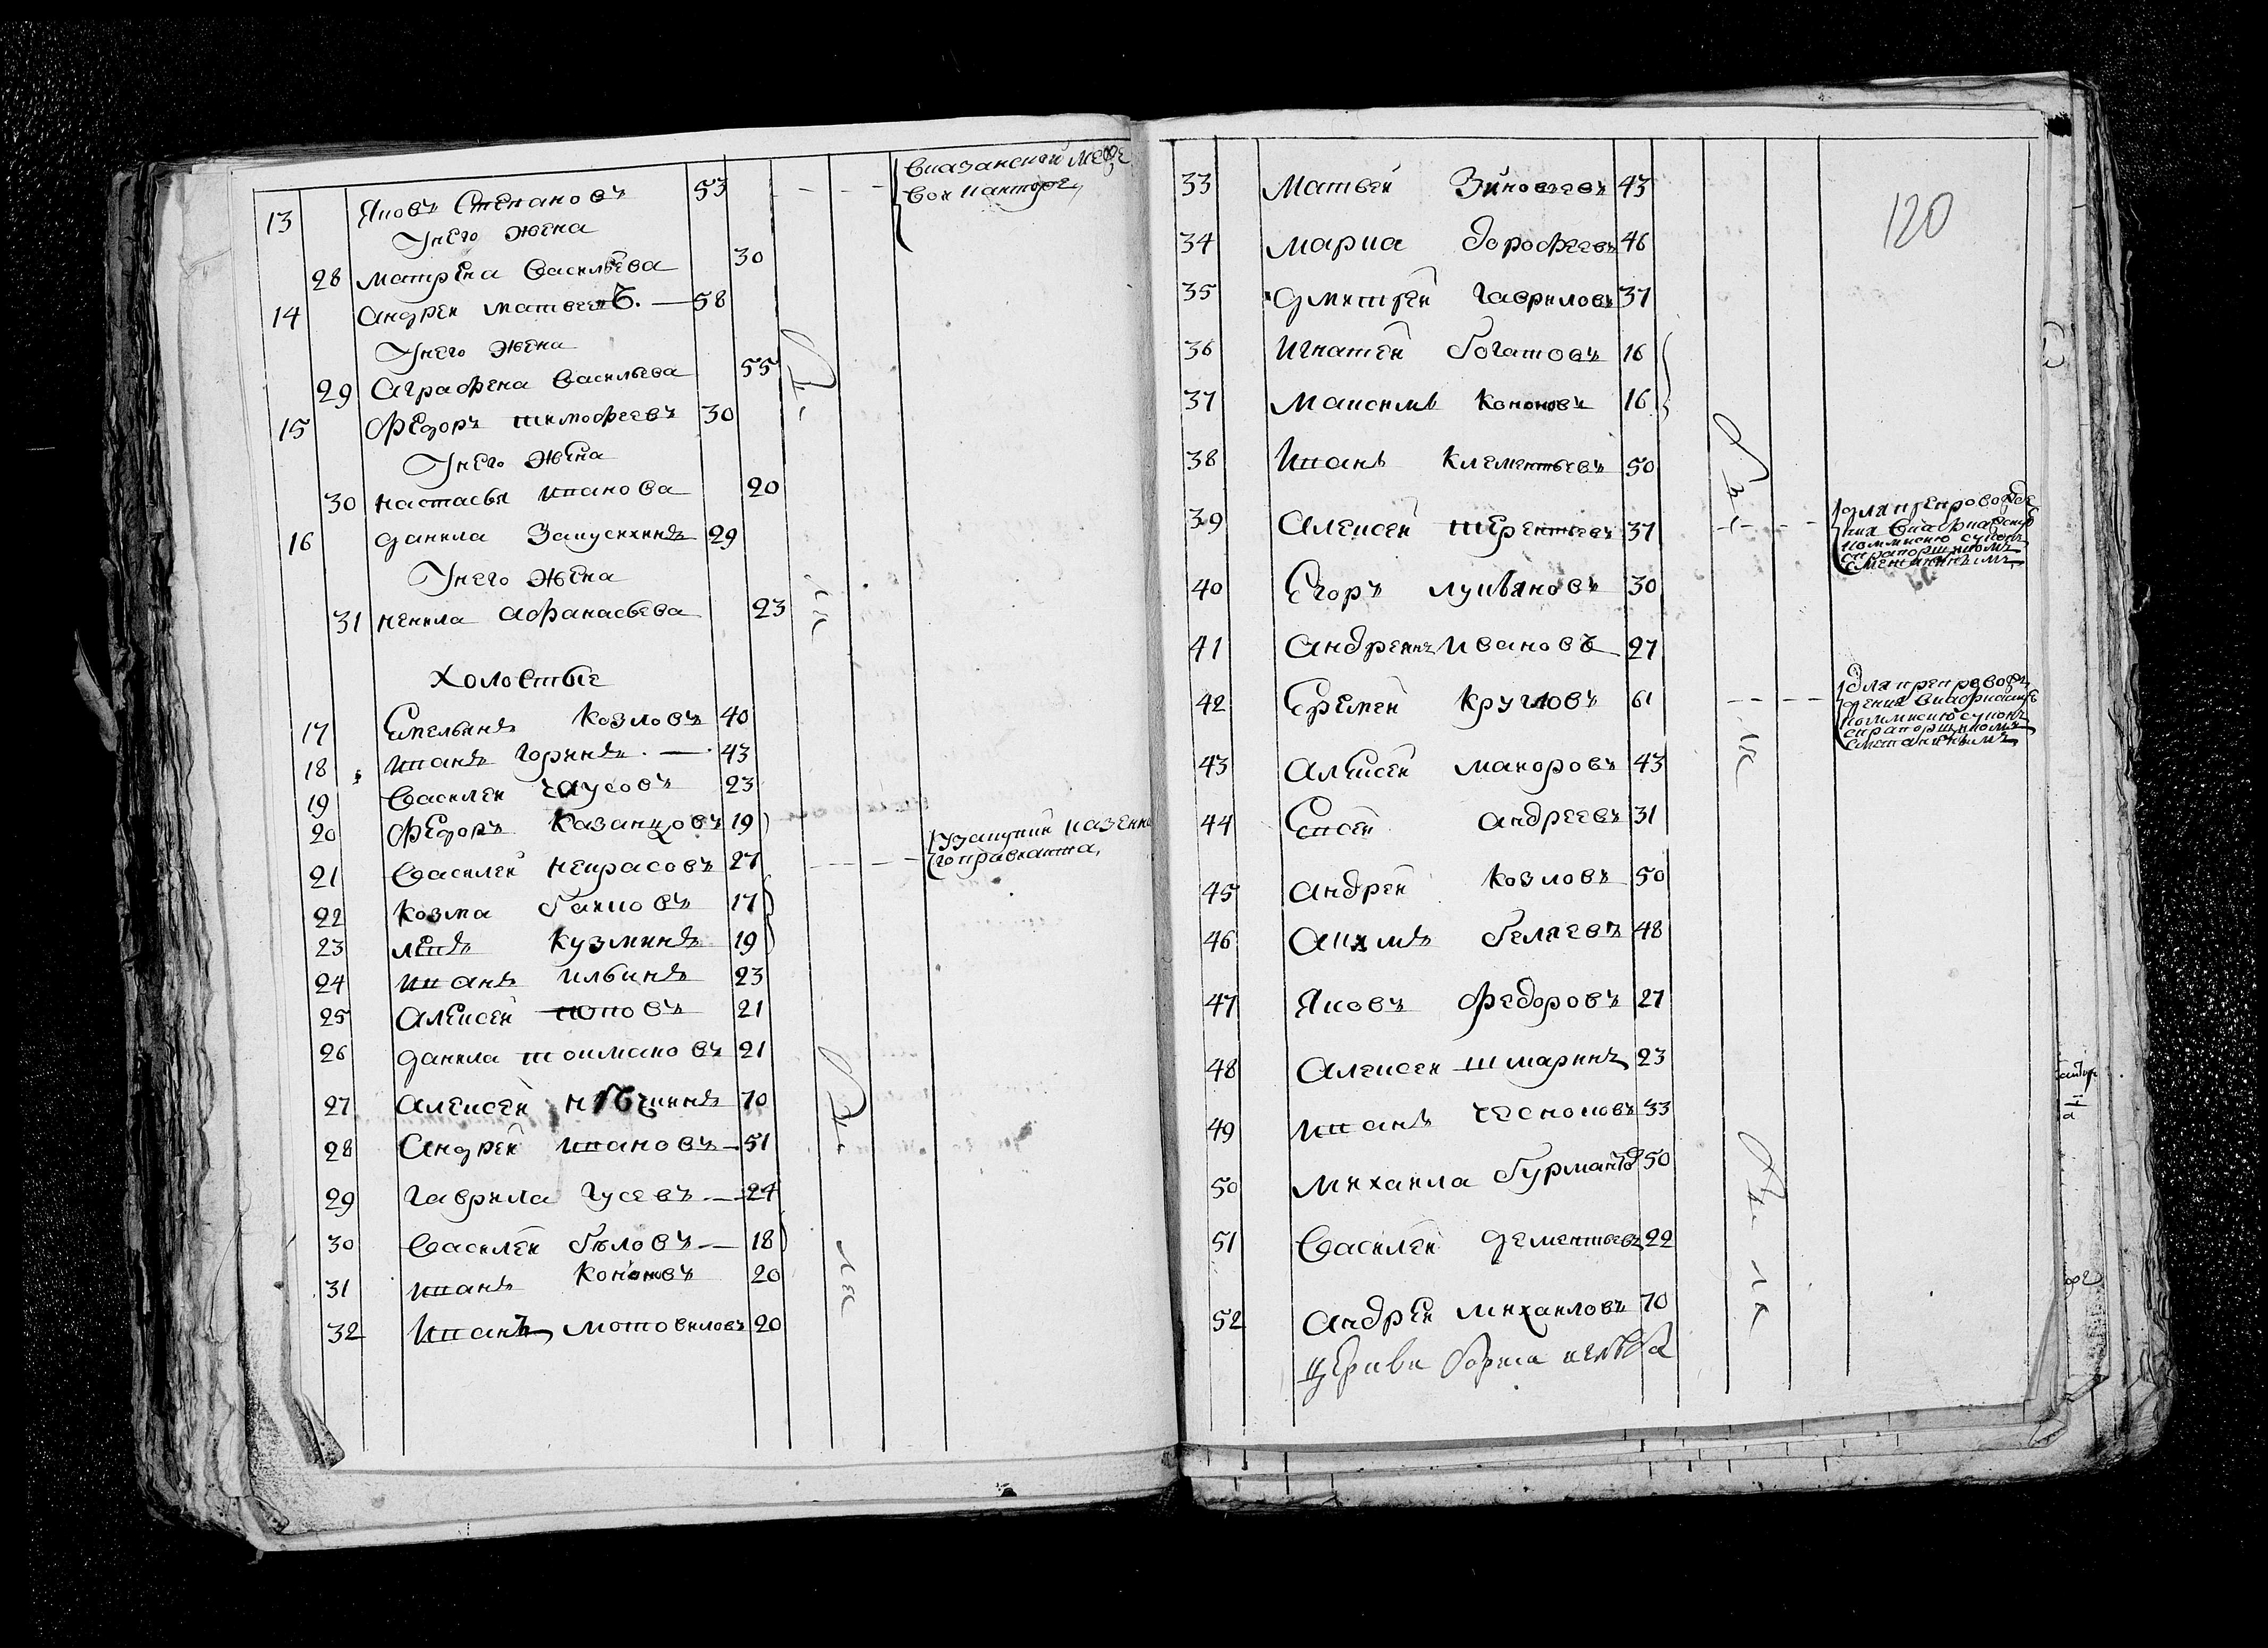 13 Яковъ Степановъ 53
вказанской меже
вои канторе
У него жена
28 матрена васильева 30
14 андреи матвеевъ. — 58
У него жена
29 аграфена васильева 55
15 федоръ тимофеевъ 30
У него жена
30 настасья иванова 20
16 данила Запускинъ 29
У него жена
31 ненила афанасьева 23
холостые
17 Емельянъ козловъ 40
18 иванъ горинъ. — 43
19 василеи чаусовъ 23
20 федоръ казанцовъ 19
21 василей некрасовъ 27
узакупки казенна
го правианта,
22 козма баиковъ 17
23 левъ кузминъ 19
24 иванъ ильинъ 23
25 алексей поповъ 21
26 данила толмановъ 21
27 алексей 70
28 андрей ивановъ — 51
29 гаврила гусевъ — 24
30 василей бѣловъ — 18
31 иванъ кононовъ 20
32 иванъ мотовиловъ 20
120
33 матвей Зиновьевъ 43
34 марка дорофеевъ 46
35 дмитрей гавриловъ 37
36 игнатей богатовъ 16
37 максимъ кононовъ 16
38 иванъ клементьевъ 50
39 алексей терентьевъ 37
для препровожде
ния
комисию суконъ
спрапорщикомъ
сметанинымъ
40 Егоръ лукьяновъ 30
41 андреянъ ивановъ 27
42 Еремей кругловъ 61
для препровож
дения
комисию суконъ
спрапорщикомъ
сметанинымъ
43 алексей макаровъ 43
44 Евсей андреевъ 31
45 андрей козловъ 50
46 акимъ беляевъ 48
47 Яковъ федоровъ 27
48 алексеи шмаринъ 23
49 иванъ чесноковъ 33
50 михаила бурмантов 50
51 василей дементьевъ 22
52 андрей михаиловъ 70
церкви бориса и глѣба